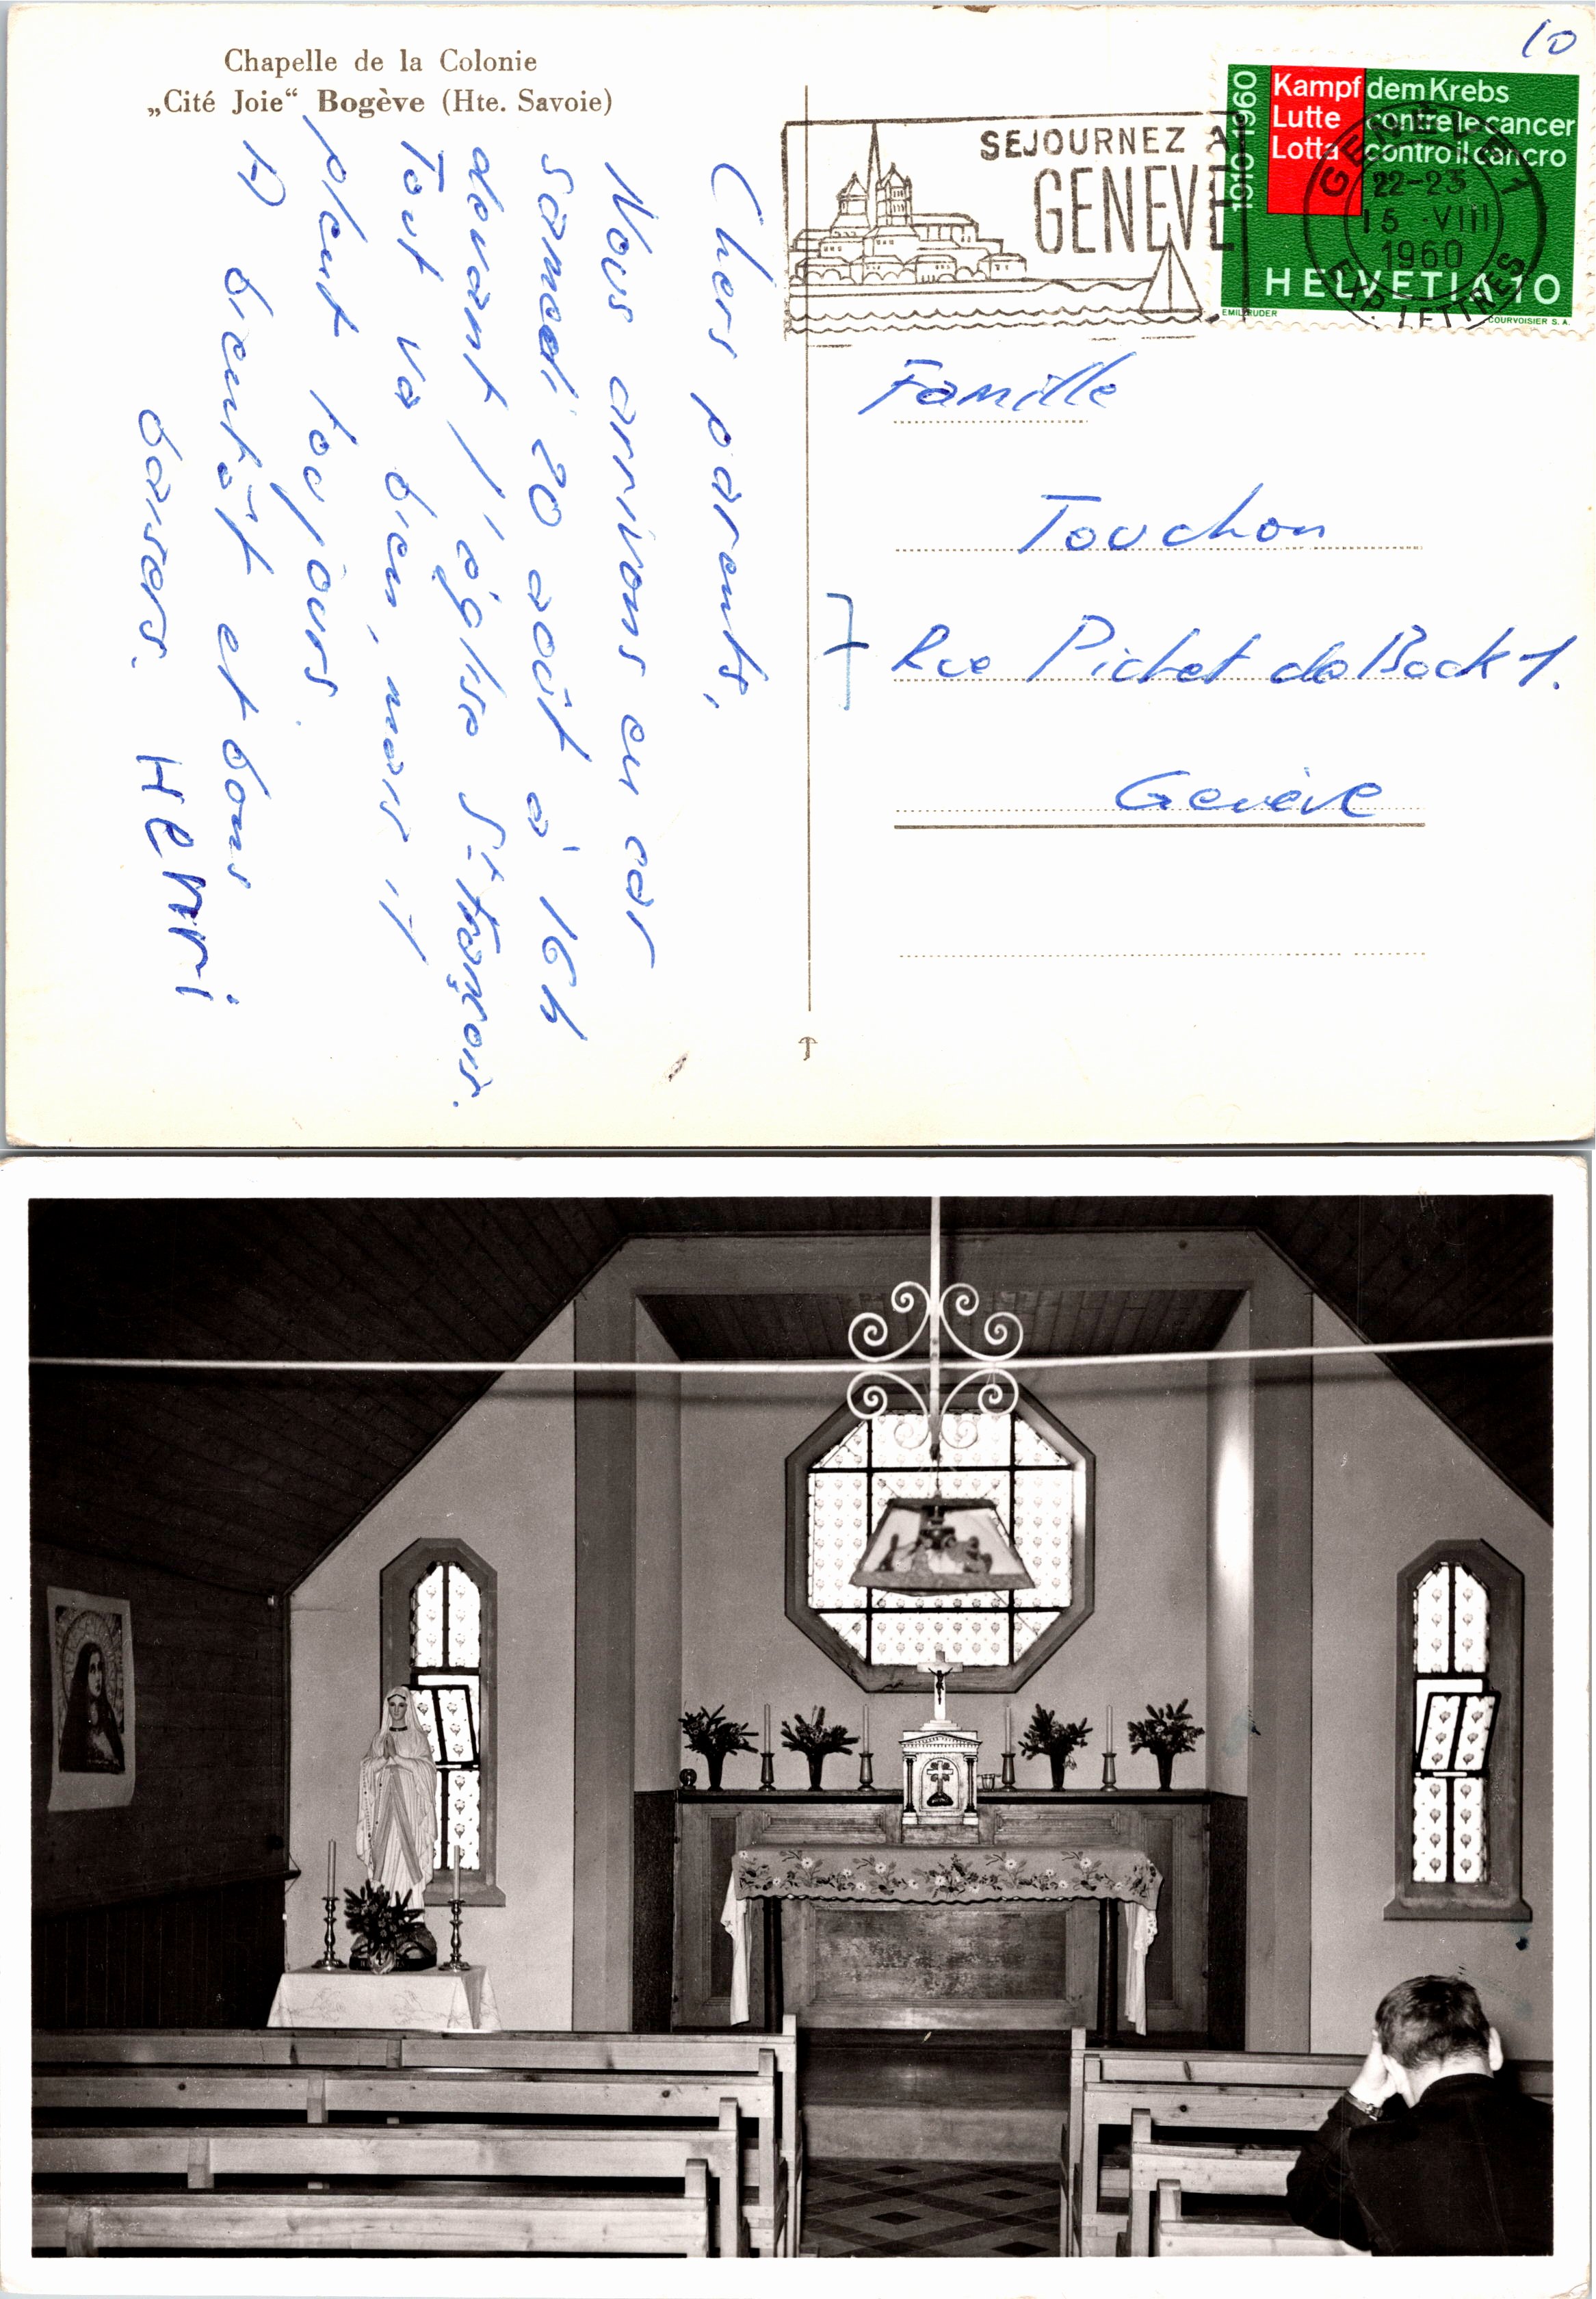 Chapelle de la Colonie
„Cité Joie“ Bogève (Hte. Savoie)
Chers parents,
Nous arrivons en car
samedi 20 août à 16h
devant l'église St François.
Tout va bien, mais il
pleut toujours.
A bientôt et bons
baisers. Henri
10
SEJOURNEZ A
GENEVE
1910 1960
Kampf dem Krebs
Lutte contre le cancer
Lotta contro il cancro
HELVETIA 10
EMIL RUDER
COURVOISIER S.A.
GENEVE 1
22-23
15 VIII
1960
EXP. LETTRES
Famille
Touchon
7 Rue Pictet de Bock 1.
Genève